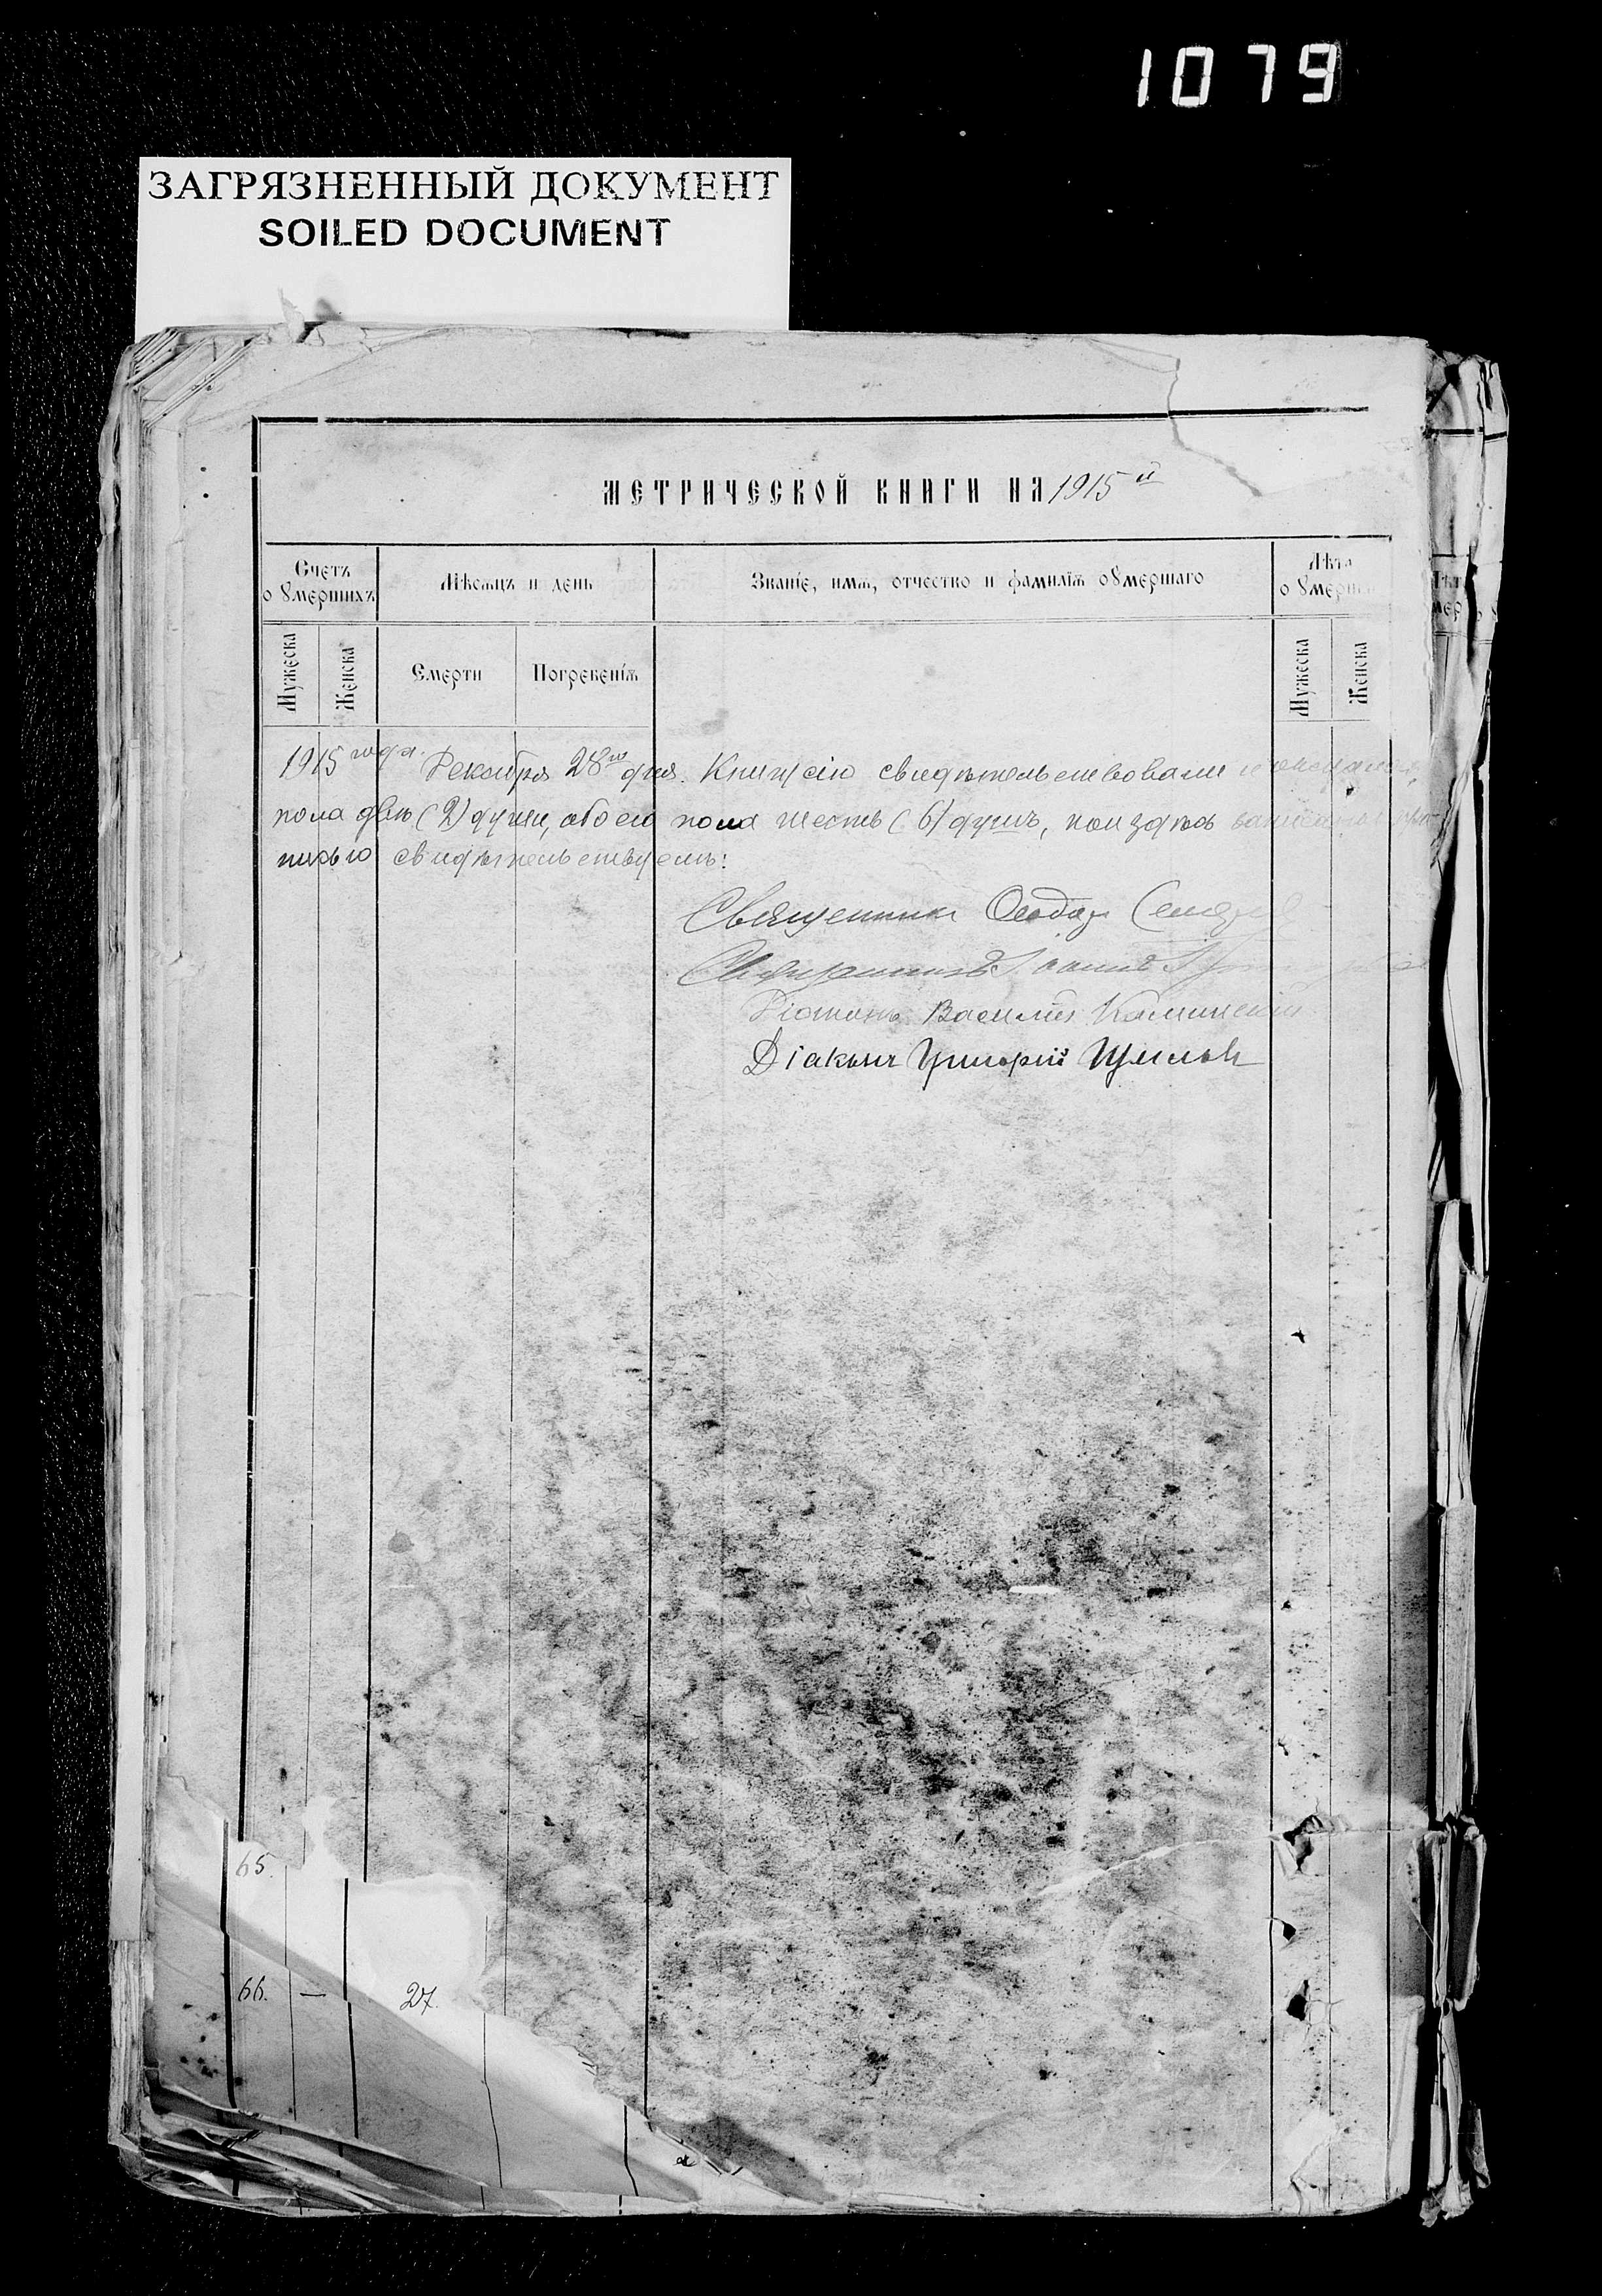 1079
ЗАГРЯЗНЕННЫЙ ДОКУМЕНТ
SOILED DOCUMENT
МЕТРИЧЕСКОЙ КНИГИ НА 1915 й
Счетъ
о умершихъ
Мѣсяцъ и день
Званіе, имя, отчество и фамилія оумершаго
Лѣта
о умерш
Мужеска
Женска
Смерти
Погребенія
Мужеска
Женска
1915 года. Декабря 28го дня. Книгу сію свидѣтельствовали и
пола двѣ (2) души, обоего пола шесть (6) душъ, кои здѣсь
писью свидѣтельствуемъ:
Священникъ Ѳеодоръ
Священникъ Іоаннъ
Діаконъ Василій Каминскій
Діаконъ Григорій
65.
66. — 27.